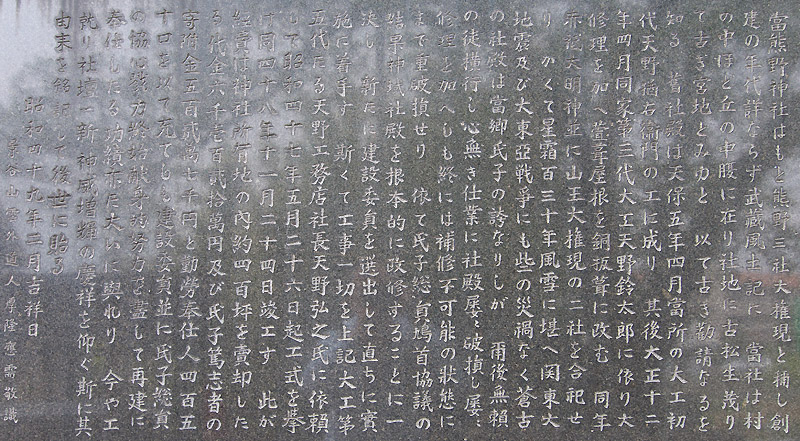 當熊野神社はもと熊野三社大權現と稱し創
建の年代詳ならず武藏風土記に 當社は村
の中ほど丘の中腹に在り社地に古松生茂り
て古き宮地とみゆと 以て古き勧請なるを
知る 舊社殿は天保五年四月當所の大工初
代天野猶右衞門の工に成り 其後大正十二
年四月同家第三代大工天野鈴太郎に依り大
修理を加へ萱葺屋根を銅板葺に改む 同年
赤記大明神並に山王大権現の二社を合祀せ
り かくて星霜百三十年風雪に堪へ関東大
地震及び大東亞戰爭にも些の災禍なく蒼古
の社殿は當郷氏子の誇なりしが 爾後無頼
の徒横行し心無き仕業に社殿屡〻破損し屡〻
修理を加へしも終には補修不可能の狀態に
まで重破損せり 依て氏子総貟鳩首協議の
結果神域社殿を根本的に改修することに一
決し 新たに建設委貟を選出して直ちに實
施に着手す 斯くて工事一切を上記大工第
五代たる天野工務店社長天野弘之氏に依頼
して昭和四十七年五月二十六日起工式を擧
げ同四十八年十一月二十四日竣工す 此が
經費は神社所有地の內約四百坪を賣却した
る代金六千壱百貳拾萬円及び氏子篤志者の
寄附金五百貳萬七千円と勤勞奉仕人四百五
十口を以て充てしも建設委貟並に氏子総貟
の協
奉仕したる功績亦た大いに與れり 今や工
就り社壇一新神威増輝の慶祥を仰ぐ斯に其
由来を銘記して後世に貽る
昭和四十九年二月吉祥日